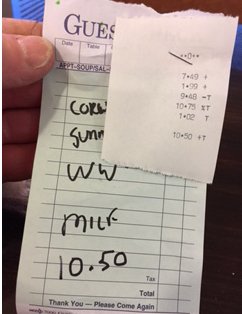 GUES
Date Table
APPT-SOUP/SAL-
··0··
7•49 +
1•99 +
9•48 -T
10•75 %T
1•02 T
10•50 +T
WW
MILK
10.50
Tax
Total
Thank You — Please Come Again